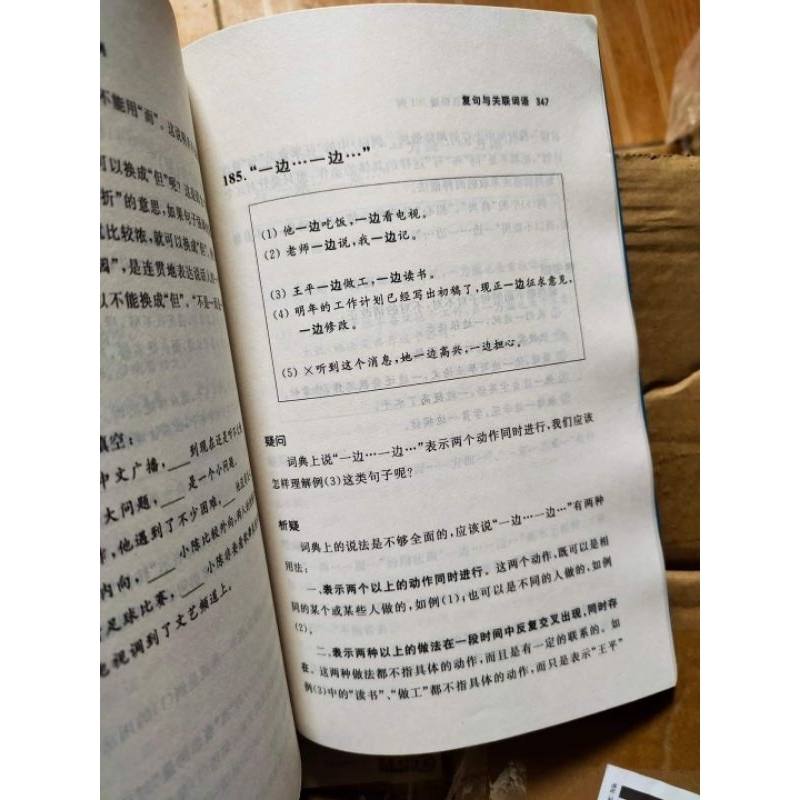 不能用“面”。这说明
可以换成“但”呢？这是
折”的意思，如果句子
比较浓，就可以换成“但”，
园”，是连贯地表达说话人的
以不能换成“但”，“不是一
填空：
中文广播，____到现在还是听不
大问题，____是一个小问题。
，他遇到了不少困难，____
内向，____小陈比较外向，两人的
足球比赛，____小陈非要看
电视调到了文艺频道上。
复句与关联词语 347
185.“一边…一边…”
(1) 他一边吃饭，一边看电视。
(2) 老师一边说，我一边记。
(3) 王平一边做工，一边读书。
(4) 明年的工作计划已经写出初稿了，现正一边征求意见，
一边修改。
(5) ×听到这个消息，她一边高兴，一边担心。
疑问
词典上说“一边…一边…”表示两个动作同时进行，我们应该
怎样理解例(3)这类句子呢？
析疑
词典上的说法是不够全面的，应该说“一边…一边…”有两种
用法：
一、表示两个以上的动作同时进行。这两个动作，既可以是相
同的某个或某些人做的，如例(1)；也可以是不同的人做的，如例
(2)。
二、表示两种以上的做法在一段时间中反复交叉出现，同时存
在。这两种做法都不指具体的动作，而且是有一定的联系的。如
例(3)中的“读书”、“做工”都不指具体的动作，而只是表示“王平”